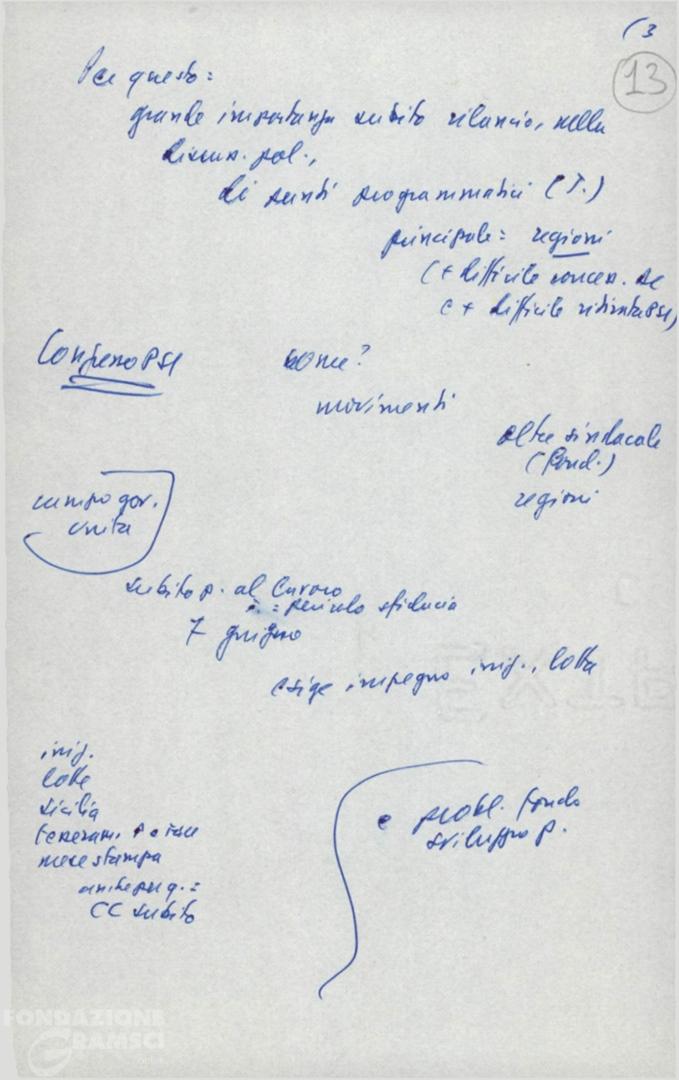 (3
13
Per questo =
grande importanza subito rilancio, nella
discus. pol.,
di punti programmatici (T.)
principale = regioni
(+ difficile conces. DC
e + difficile rifiuta PSI)
Congresso PSI
come?
movimenti
oltre sindacale
(Fond.)
regioni
campo gov.
unità
subito p. al lavoro
= pericolo sfiducia
7 giugno
esige impegno iniz., lotta
iniz.
lotte
Sicilia
tesseram.
mese stampa
anche per q. =
CC subito
e probl. fondo
sviluppo p.
FONDAZIONE
GRAMSCI